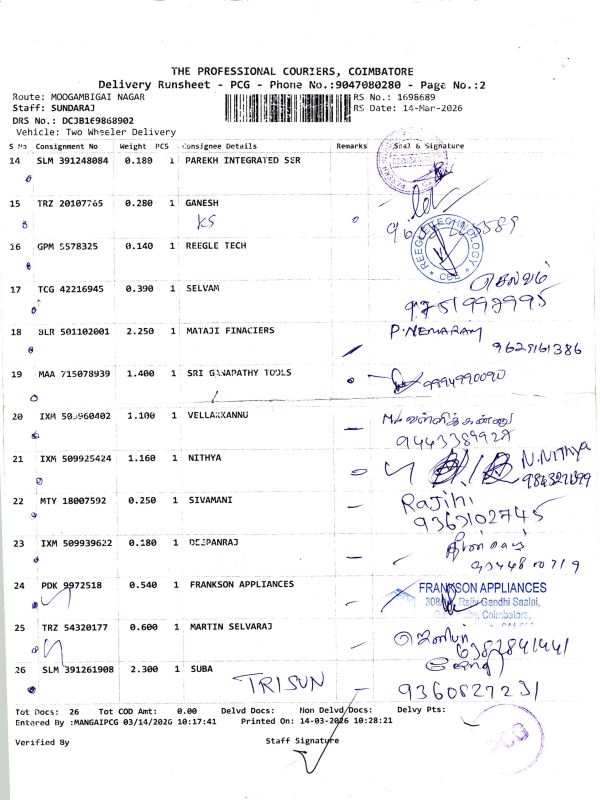 THE PROFESSIONAL COURIERS, COIMBATORE
Delivery Runsheet - PCG - Phone No.:9047080280 - Page No.:2
Route: MOOGAMBIGAI NAGAR RS No.: 1698689
Staff: SUNDARAJ RS Date: 14-Mar-2026
DRS No.: DCJB169868902
Vehicle: Two Wheeler Delivery
S No Consignment No Weight PCS Consignee Details Remarks Seal & Signature
14 SLM 391248084 0.180 1 PAREKH INTEGRATED SER
15 TRZ 20107765 0.280 1 GANESH
KS
16 GPM 5578325 0.140 1 REEGLE TECH
REEGLE TECHNOLOGY CBE
17 TCG 42216945 0.390 1 SELVAM செல்வம்
9751998995
18 BLR 501102001 2.250 1 MATAJI FINACIERS P.NEMARAM
9629161386
19 MAA 715078939 1.400 1 SRI GANAPATHY TOOLS 9994990090
20 IXM 509960402 1.100 1 VELLAKKANNU
9443389928
21 IXM 509925424 1.160 1 NITHYA N.NITHYA
22 MTY 18007592 0.250 1 SIVAMANI Rajini
9363102745
23 IXM 509939622 0.180 1 DEEPANRAJ
24 PDK 9972518 0.540 1 FRANKSON APPLIANCES FRANKSON APPLIANCES
Rajiv Gandhi Saalai,
Coimbatore,
25 TRZ 54320177 0.600 1 MARTIN SELVARAJ
6382841441
26 SLM 391261908 2.300 1 SUBA
TRISUN 9360827231
Tot Docs: 26 Tot COD Amt: 0.00 Delvd Docs: Non Delvd Docs: Delvy Pts:
Entered By :MANGAIPCG 03/14/2026 10:17:41 Printed On: 14-03-2026 10:28:21
Verified By Staff Signature
PCG